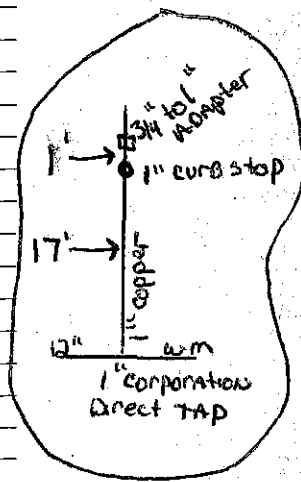 3/4" to 1"
ADApter
1'
1" curb stop
17'
1" copper
12" wm
1" corporation
Direct TAP